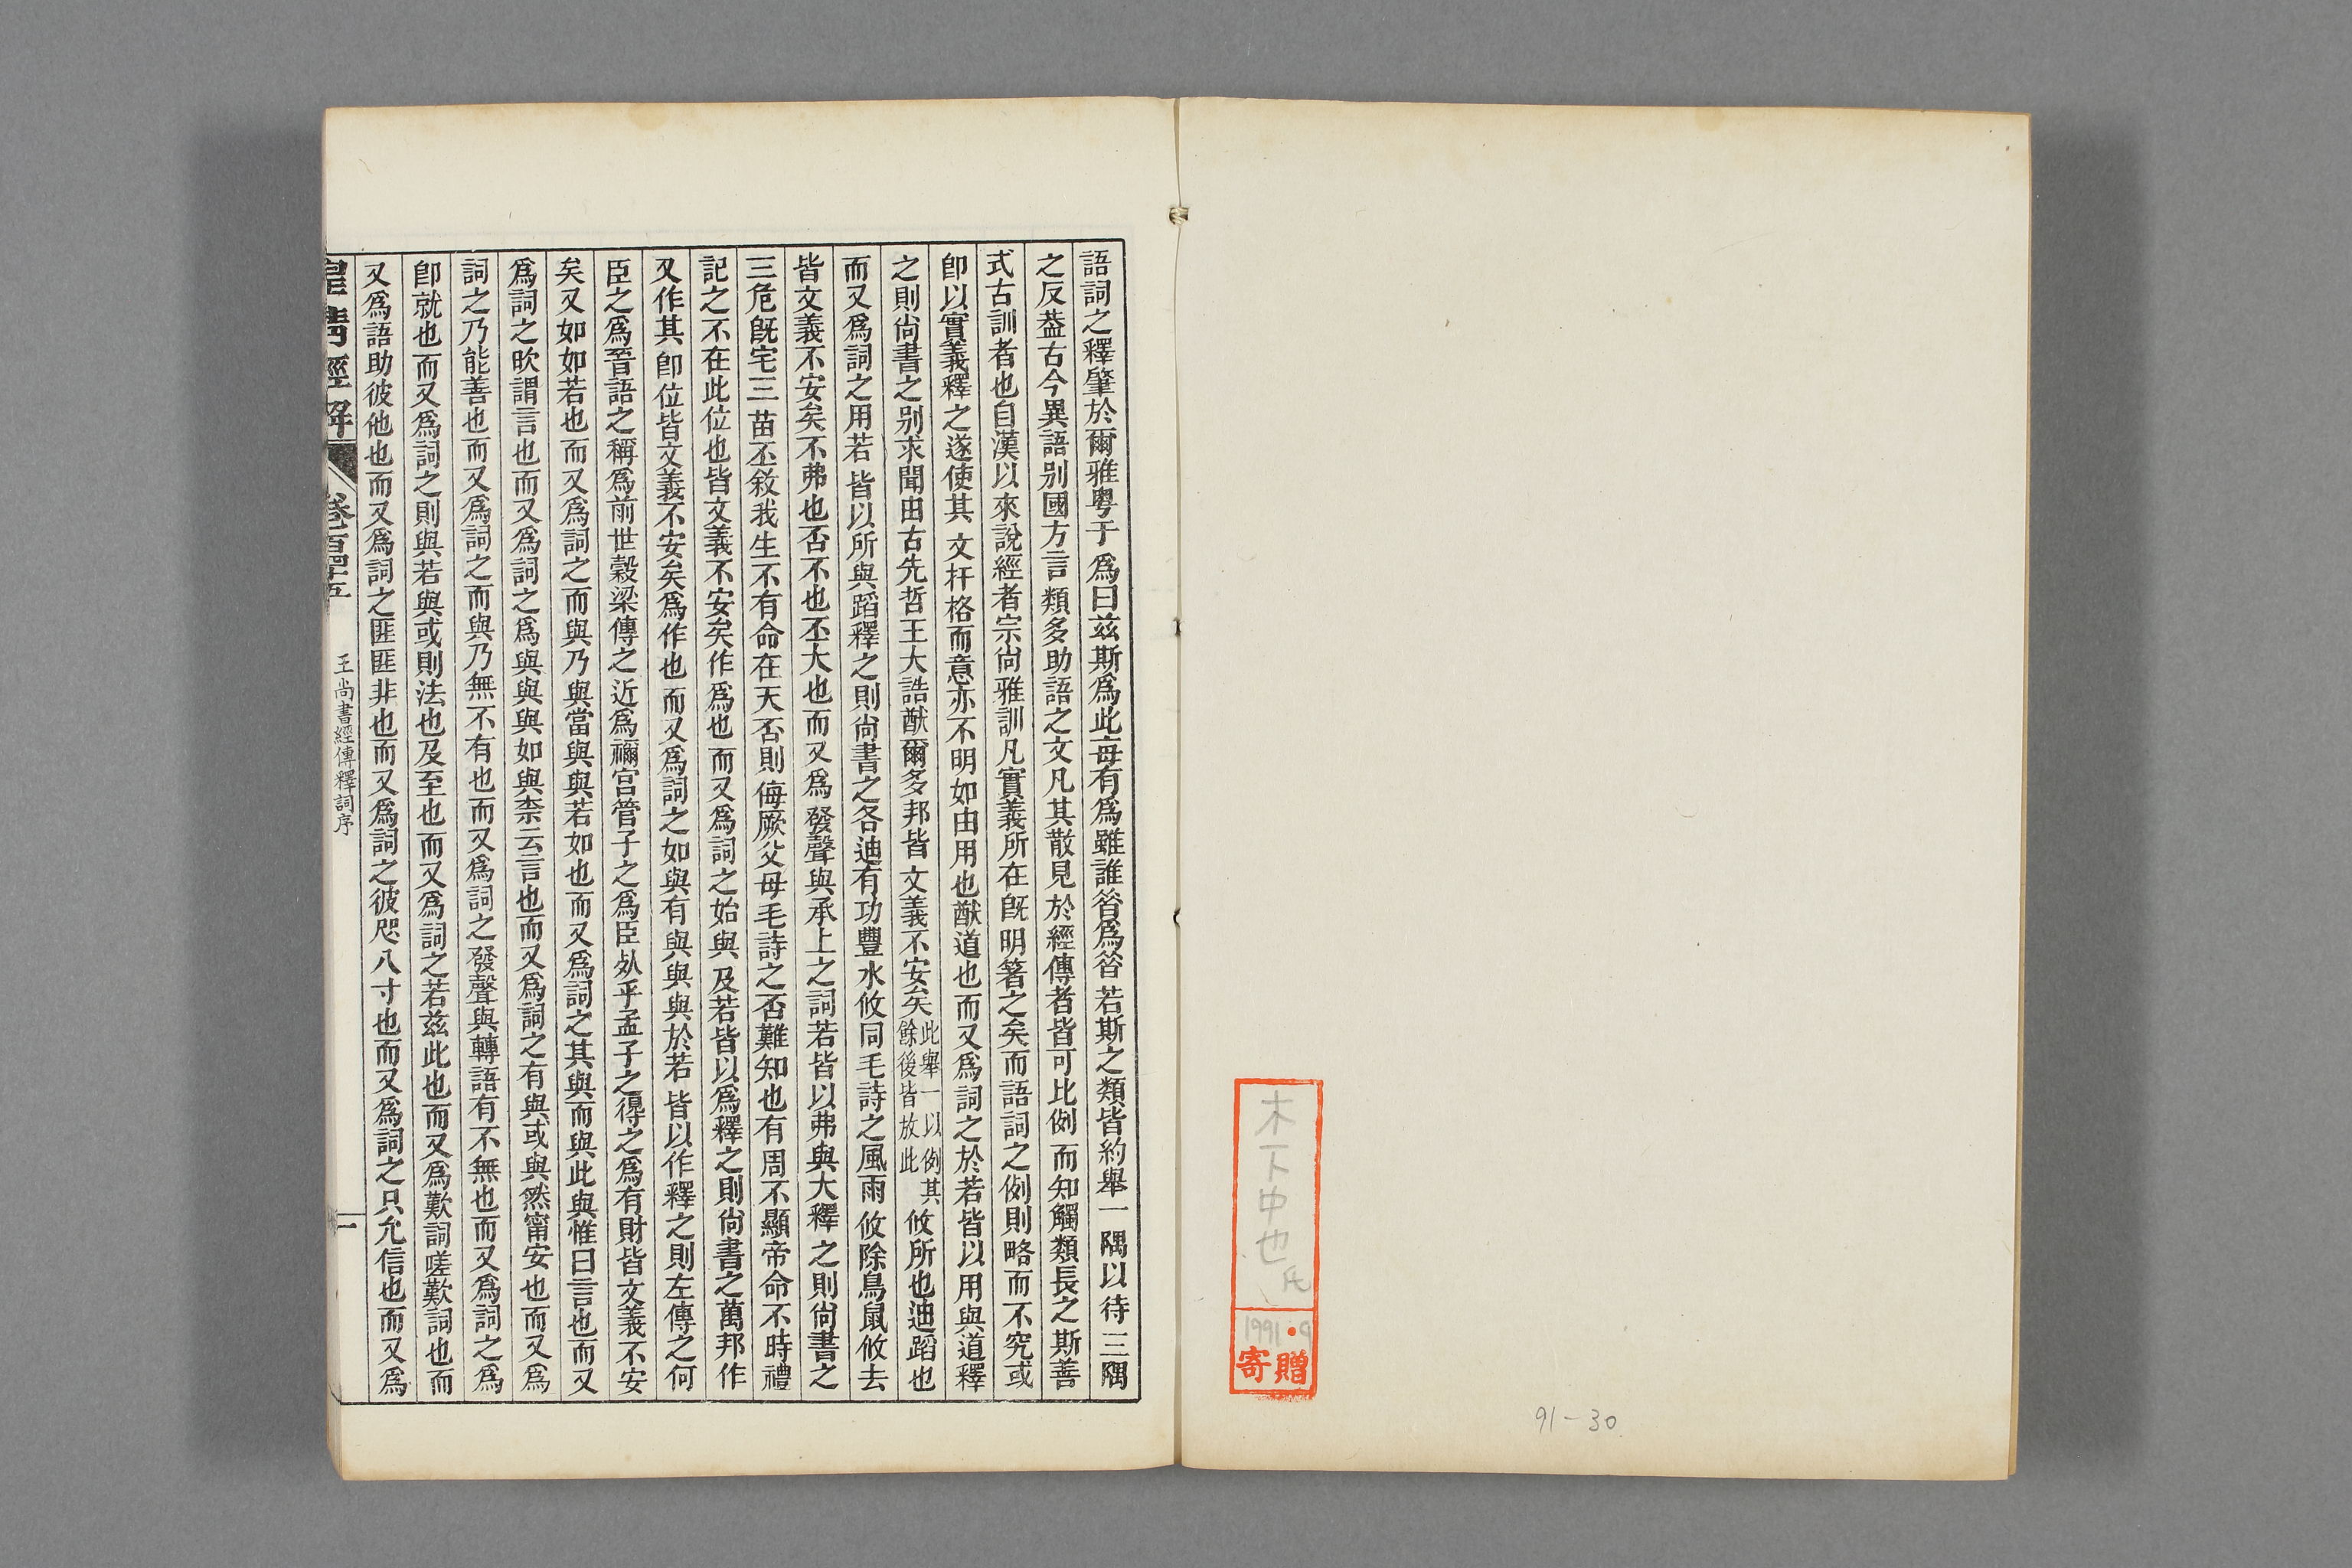 木下中也氏
1991・9
寄贈
91-30
語詞之釋肇於爾雅粤于爲曰兹斯爲此每有爲雖誰昔爲昔若斯之類皆約舉一隅以待三隅
之反葢古今異語别國方言類多助語之文凡其散見於經傳者皆可比例而知觸類長之斯善
式古訓者也自漢以來說經者宗尚雅訓凡實義所在旣明箸之矣而語詞之例則略而不究或
卽以實義釋之遂使其文扞格而意亦不明如由用也猷道也而又爲詞之於若皆以用與道釋
之則尚書之别求聞由古先哲王大誥猷爾多邦皆文義不安矣此舉一以例其餘後皆放此攸所也迪蹈也
而又爲詞之用若皆以所與蹈釋之則尚書之各迪有功豐水攸同毛詩之風雨攸除鳥鼠攸去
皆文義不安矣不弗也否不也丕大也而又爲發聲與承上之詞若皆以弗與大釋之則尚書之
三危旣宅三苗丕敘我生不有命在天否則侮厥父母毛詩之否難知也有周不顯帝命不時禮
記之不在此位也皆文義不安矣作爲也而又爲詞之始與及若皆以爲釋之則尚書之萬邦作
乂作其卽位皆文義不安矣爲作也而又爲詞之如與有與與與於若皆以作釋之則左傳之何
臣之爲晉語之稱爲前世穀梁傳之近爲禰宫管子之爲臣死乎孟子之得之爲有財皆文義不安
矣又如如若也而又爲詞之而與乃與當與與若如也而又爲詞之其與而與此與惟曰言也而又
爲詞之欥謂言也而又爲詞之爲與與與如與柰云言也而又爲詞之有與或與然甯安也而又爲
詞之乃能善也而又爲詞之而與乃無不有也而又爲詞之發聲與轉語有不無也而又爲詞之爲
卽就也而又爲詞之則與若與或則法也及至也而又爲詞之若兹此也而又爲歎詞嗟歎詞也而
又爲語助彼他也而又爲詞之匪匪非也而又爲詞之彼咫八寸也而又爲詞之只允信也而又爲
皇清經解 卷一千二百四十五 王尚書經傳釋詞序 一